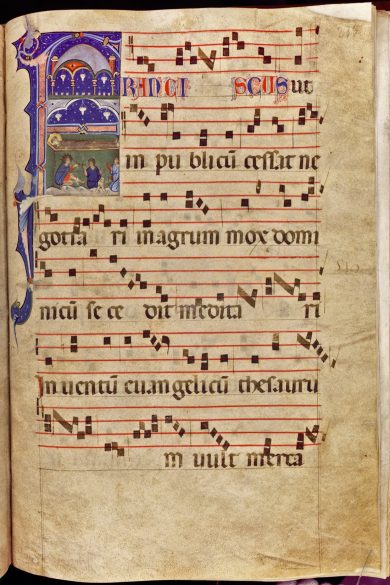 FRANCI SCUS ut
in pu blicū cessat ne
gotia ri in agrum mox domi
nicū se ce dit medita ri
In uentū euangelicū thesauru
m uult merca